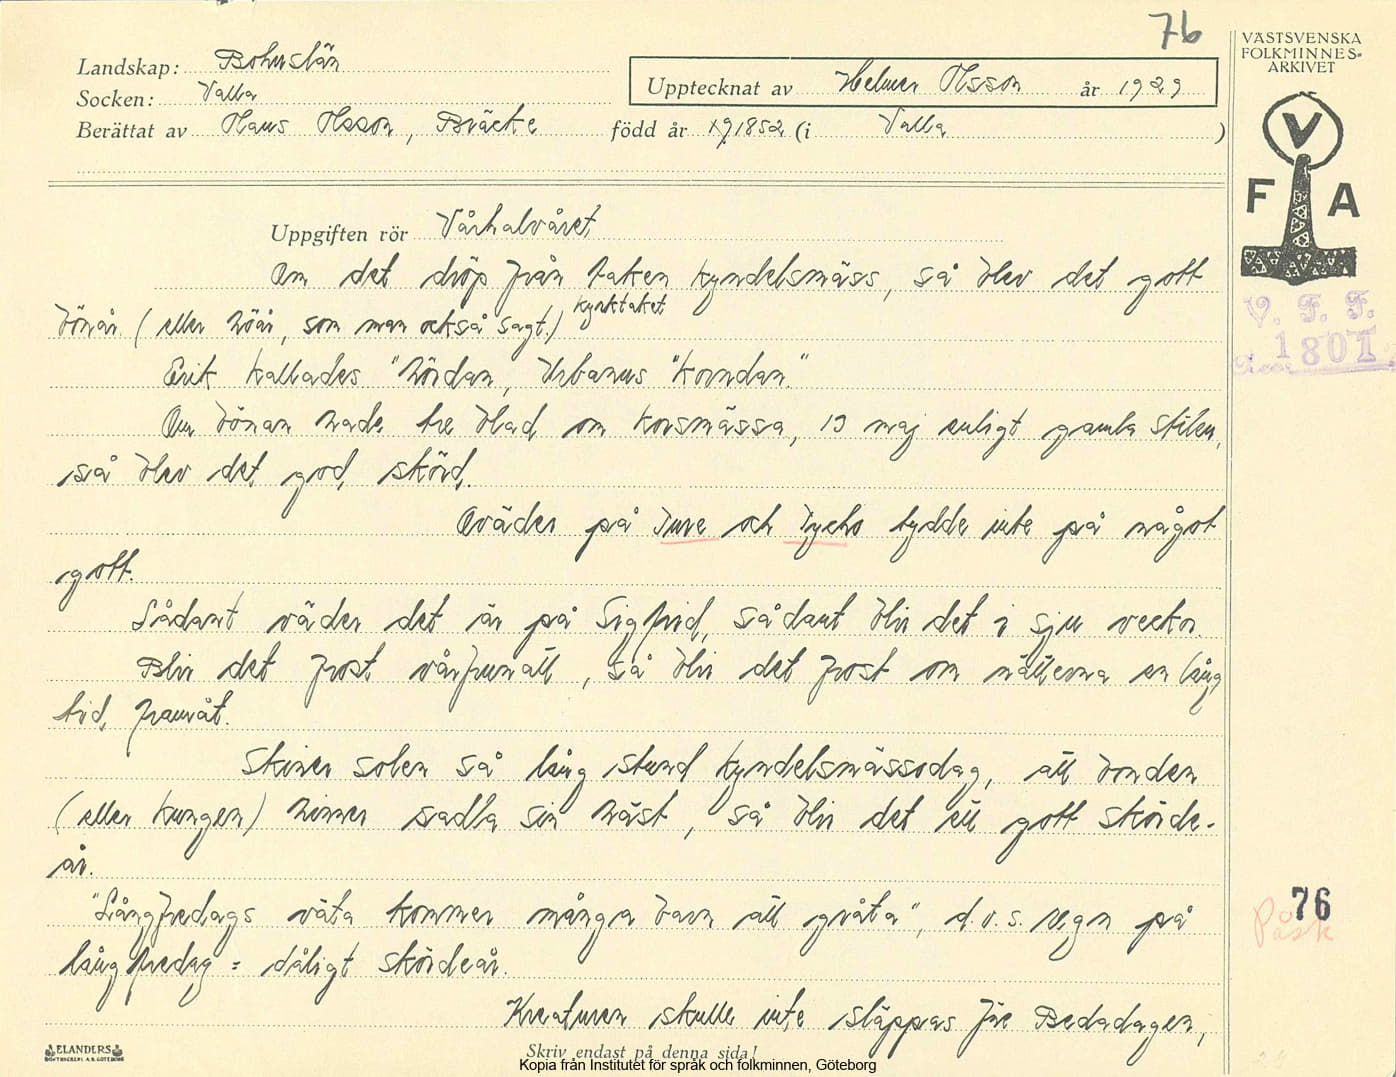 76
VÄSTSVENSKA
FOLKMINNES-
ARKIVET
Landskap: Bohuslän
Socken: Valla
Upptecknat av Helmer Olsson år 1929
Berättat av Hans Olsson, Bräcke född år 19/1852 (i Valla )
V
F A
V. F. F.
1801
Uppgiften rör Vårhalvåret.
Om det dröp från taken kyndelsmäss, så blev det gott
kyrktaket
bönår. (eller höår, som man också sagt.)
Erik kallades "Hördan, Urbanus "Korndan."
Om bönan hade tre blad om korsmässa, 13 maj enligt gamla stilen,
så blev det god skörd.
Oväder på Ture och Tycho tydde inte på något
gott.
Sådant väder det är på Sigfrid, sådant blir det i sju veckor.
Blir det frost vårfrunatt, så blir det frost om nätterna en lång
tid framåt.
Skiner solen så lång stund kyndelsmässodag, att bonden
(eller kungen) hinner sadla sin häst, så blir det ett gott skörde-
år.
"Långfredags väta kommer många barn att gråta", d.v.s. regn på
långfredag = dåligt skördeår.
76
Påsk
Kreaturen skulle inte släppas före Bedadagen,
ELANDERS
BOKTRYCKERI A.B. GÖTEBORG
Skriv endast på denna sida!
Kopia från Institutet för språk och folkminnen, Göteborg